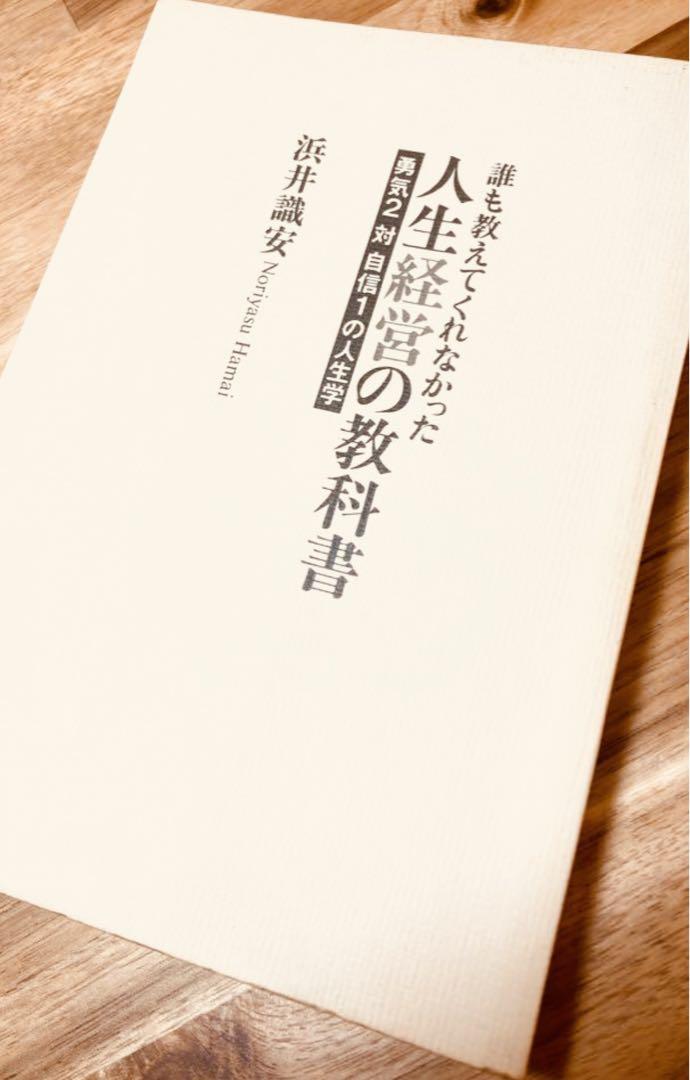 誰も教えてくれなかった
人生経営の教科書
勇気2 対 自信1の人生学
浜井識安 Noriyasu Hamai